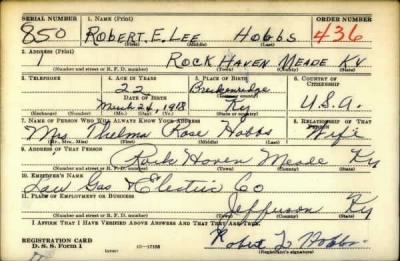 SERIAL NUMBER 1. NAME (Print) ORDER NUMBER
850 ROBERT. E. LEE HOBBS 436
(First) (Middle) (Last)
2. ADDRESS (Print)
1 ROCK HAVEN MEADE KY
(Number and street or R. F. D. number) (Town) (County) (State)
3. TELEPHONE 4. AGE IN YEARS 5. PLACE OF BIRTH 6. COUNTRY OF CITIZENSHIP
22 Breckenridge
DATE OF BIRTH (Town or county)
March 21, 1918 Ky U.S.A.
(Exchange) (Number) (Mo.) (Day) (Yr.) (State or country)
7. NAME OF PERSON WHO WILL ALWAYS KNOW YOUR ADDRESS 8. RELATIONSHIP OF THAT PERSON
Mrs Thelma Rose Hobbs Wife
(Mr., Mrs., Miss) (First) (Middle) (Last)
9. ADDRESS OF THAT PERSON
Rock Haven Meade Ky
(Number and street or R. F. D. number) (Town) (County) (State)
10. EMPLOYER'S NAME
Gas & Electric Co
11. PLACE OF EMPLOYMENT OR BUSINESS
Jefferson Ky
(Number and street or R. F. D. number) (Town) (County) (State)
I AFFIRM THAT I HAVE VERIFIED ABOVE ANSWERS AND THAT THEY ARE TRUE.
REGISTRATION CARD
D. S. S. Form 1 Robert L Hobbs
(Registrant's signature)